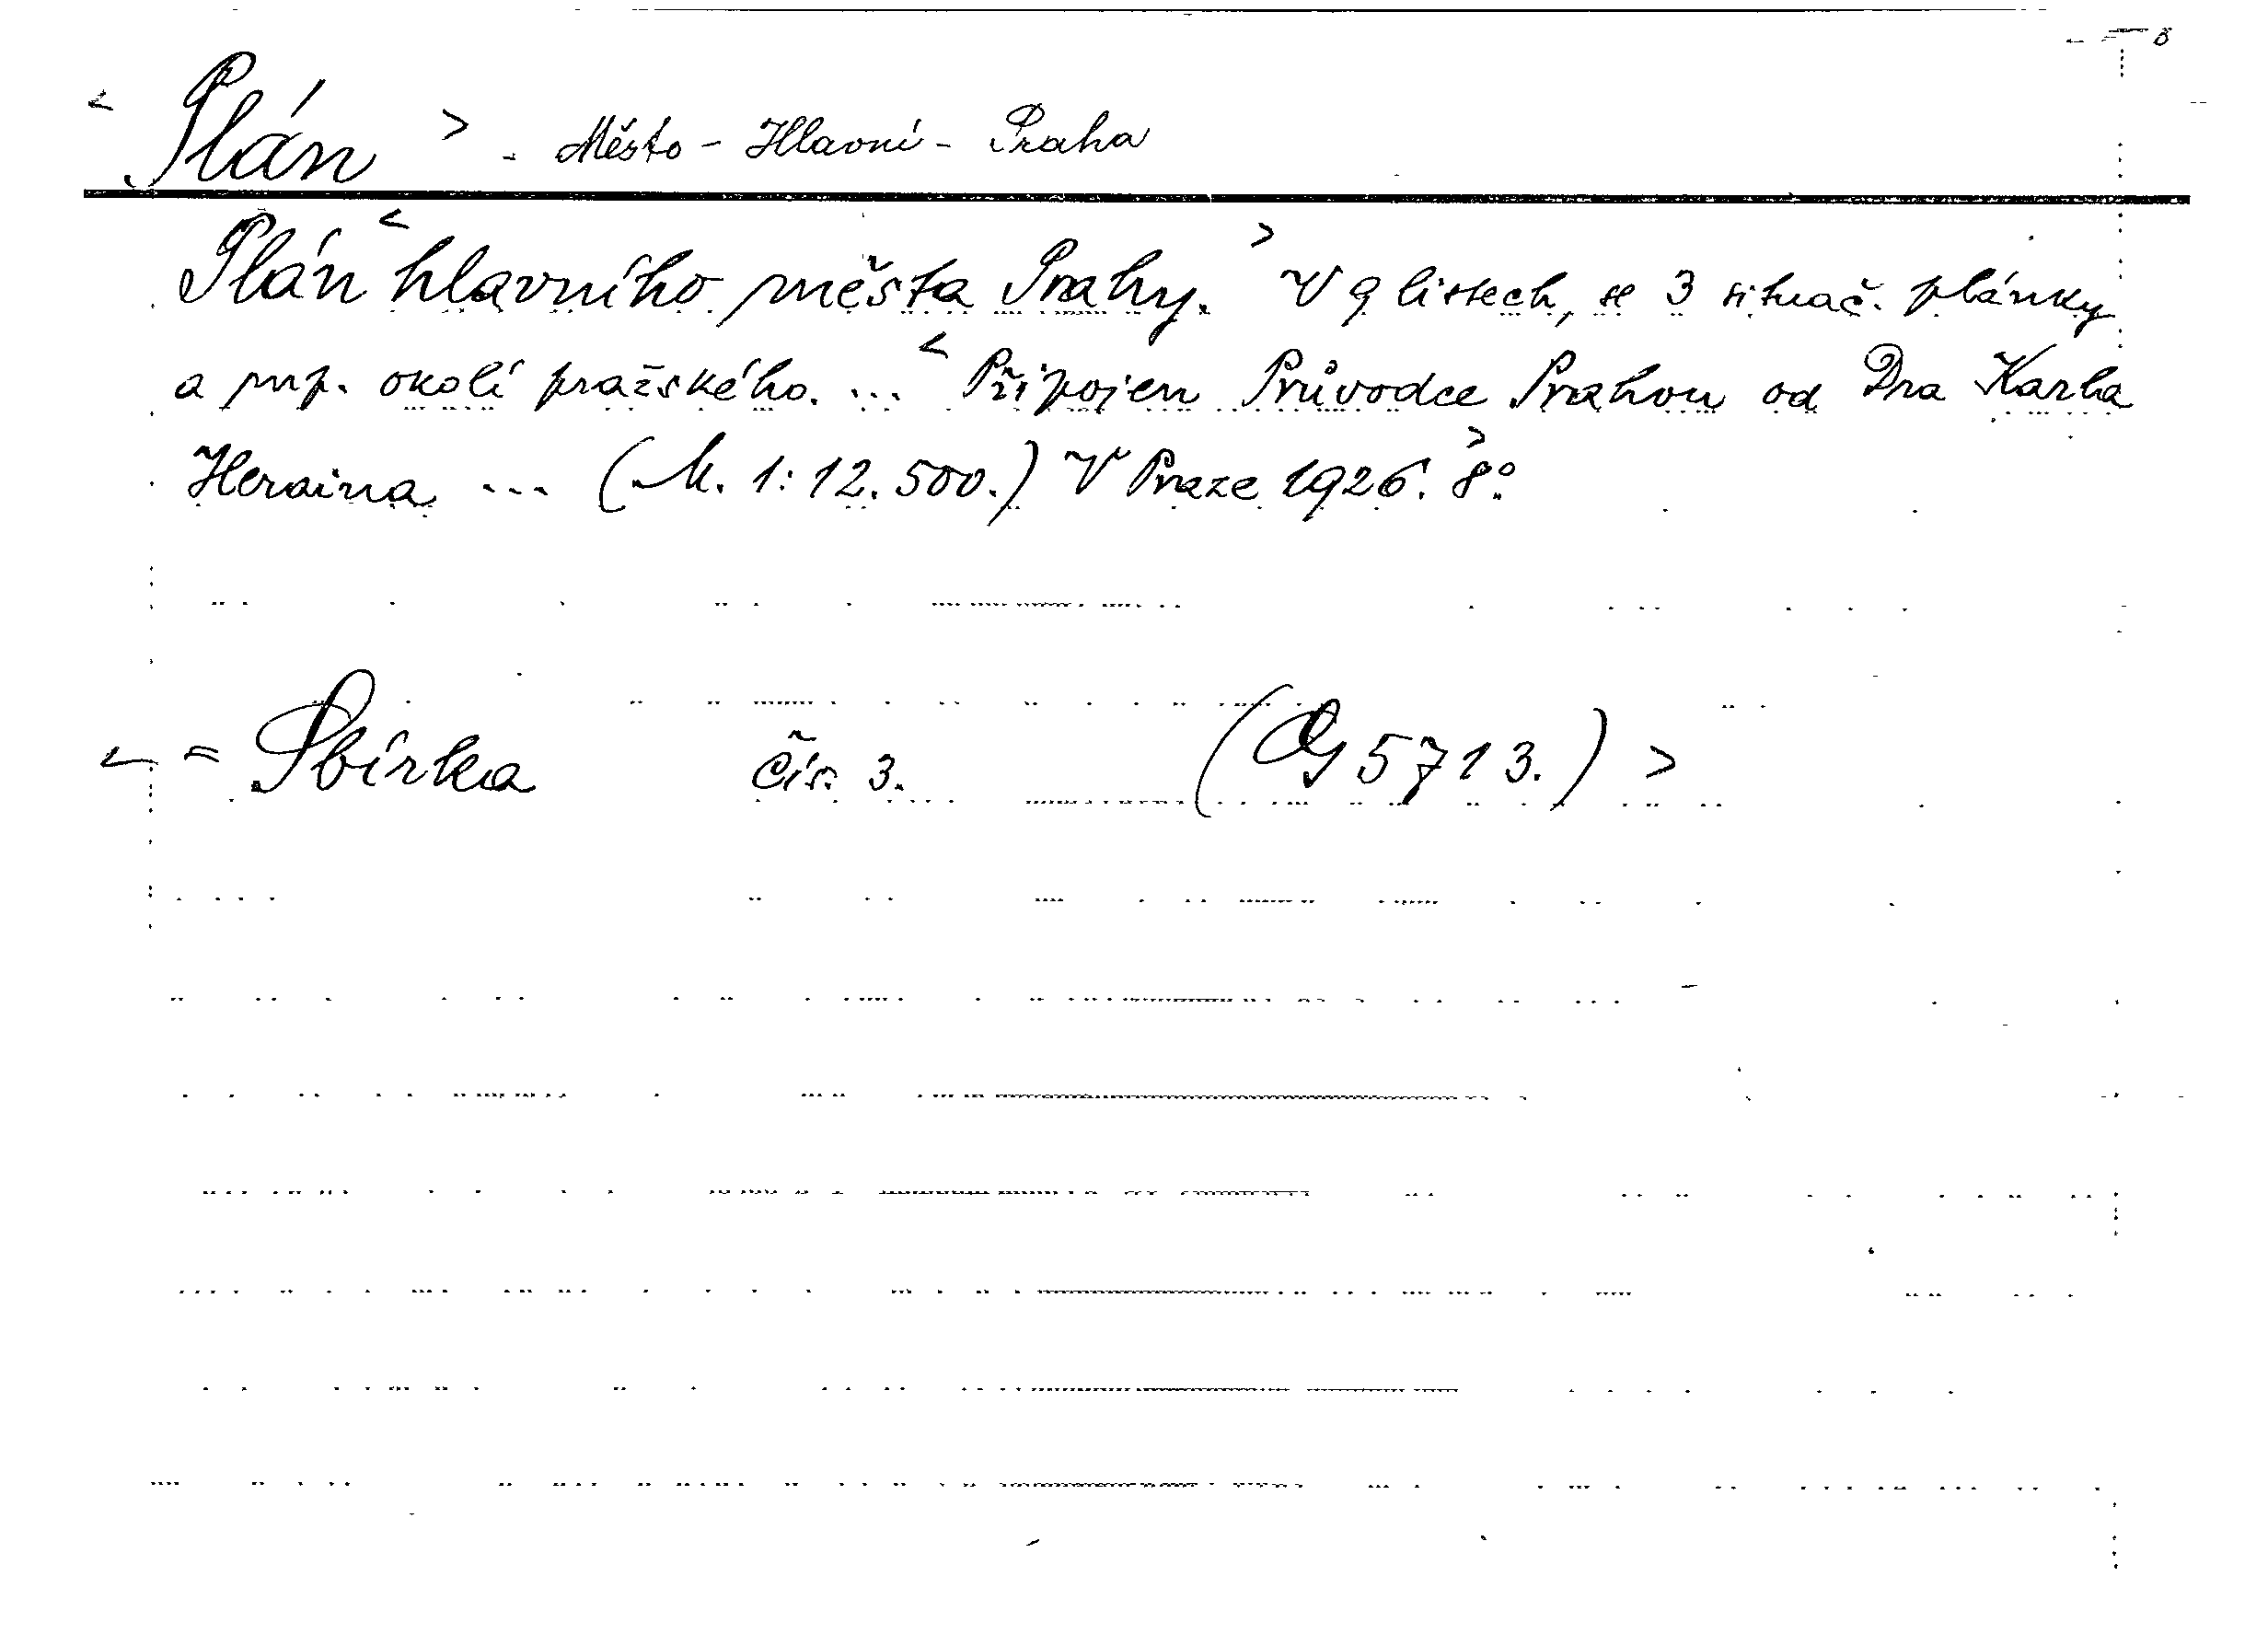 < Plán > - Město - Hlavní - Praha
Plán < hlavního města Prahy. > V 9 listech, se 3 situač. plánky
a mp. okolí pražského. ... < Připojen Průvodce Prahou od Dra Karla
Heraina ... (M. 1:12.500.) V Praze 1926. > 8°.
< = Sbírka čís. 3. (G 5713.) >